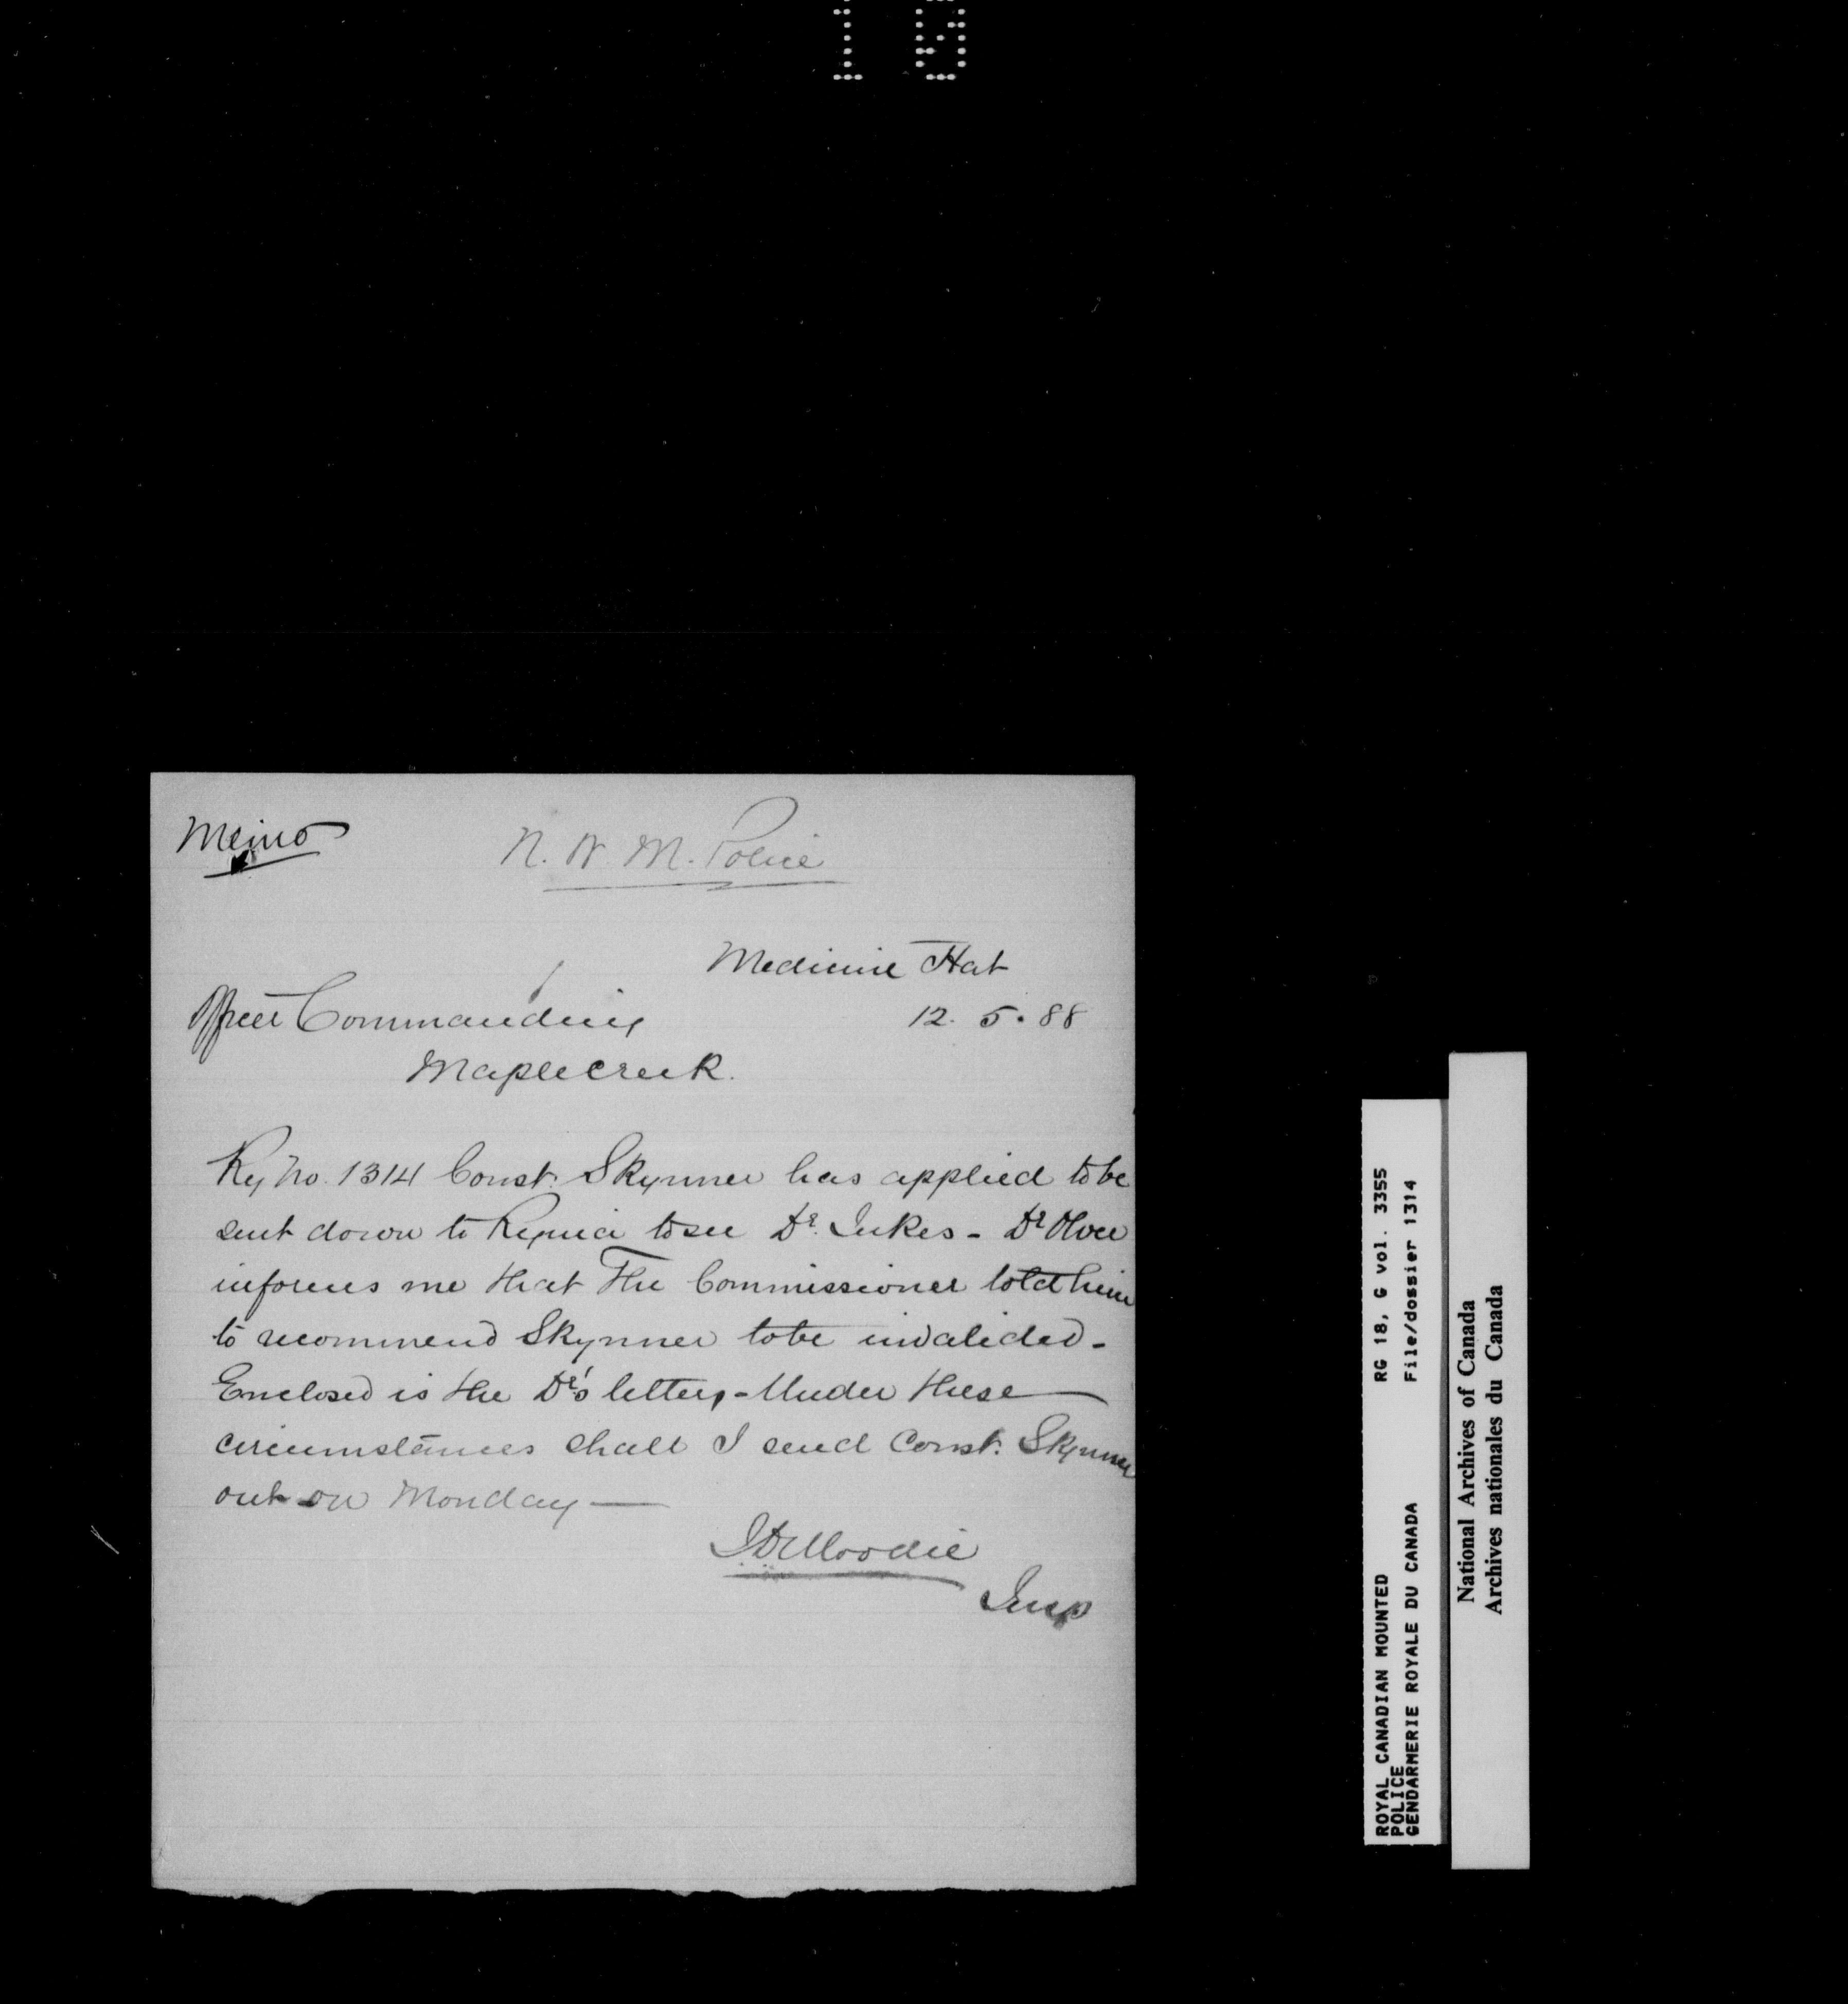 10
Memo
N. W. M. Police
Medicine Hat
Officer Commanding
12. 5. 88
Maple Creek.
Reg No. 1314 Const. Skynner has applied to be
sent down to Regina to see Dr. Jukes - Dr
informs me that The Commissioner told him
to recommend Skynner to be invalided -
Enclosed is the Dr's letter, - Under these
circumstances shall I send Const. Skynner
out on Monday —
JD Moodie
Insp
ROYAL CANADIAN MOUNTED RG 18, G vol. 3355
POLICE
GENDARMERIE ROYALE DU CANADA File/dossier 1314
National Archives of Canada
Archives nationales du Canada